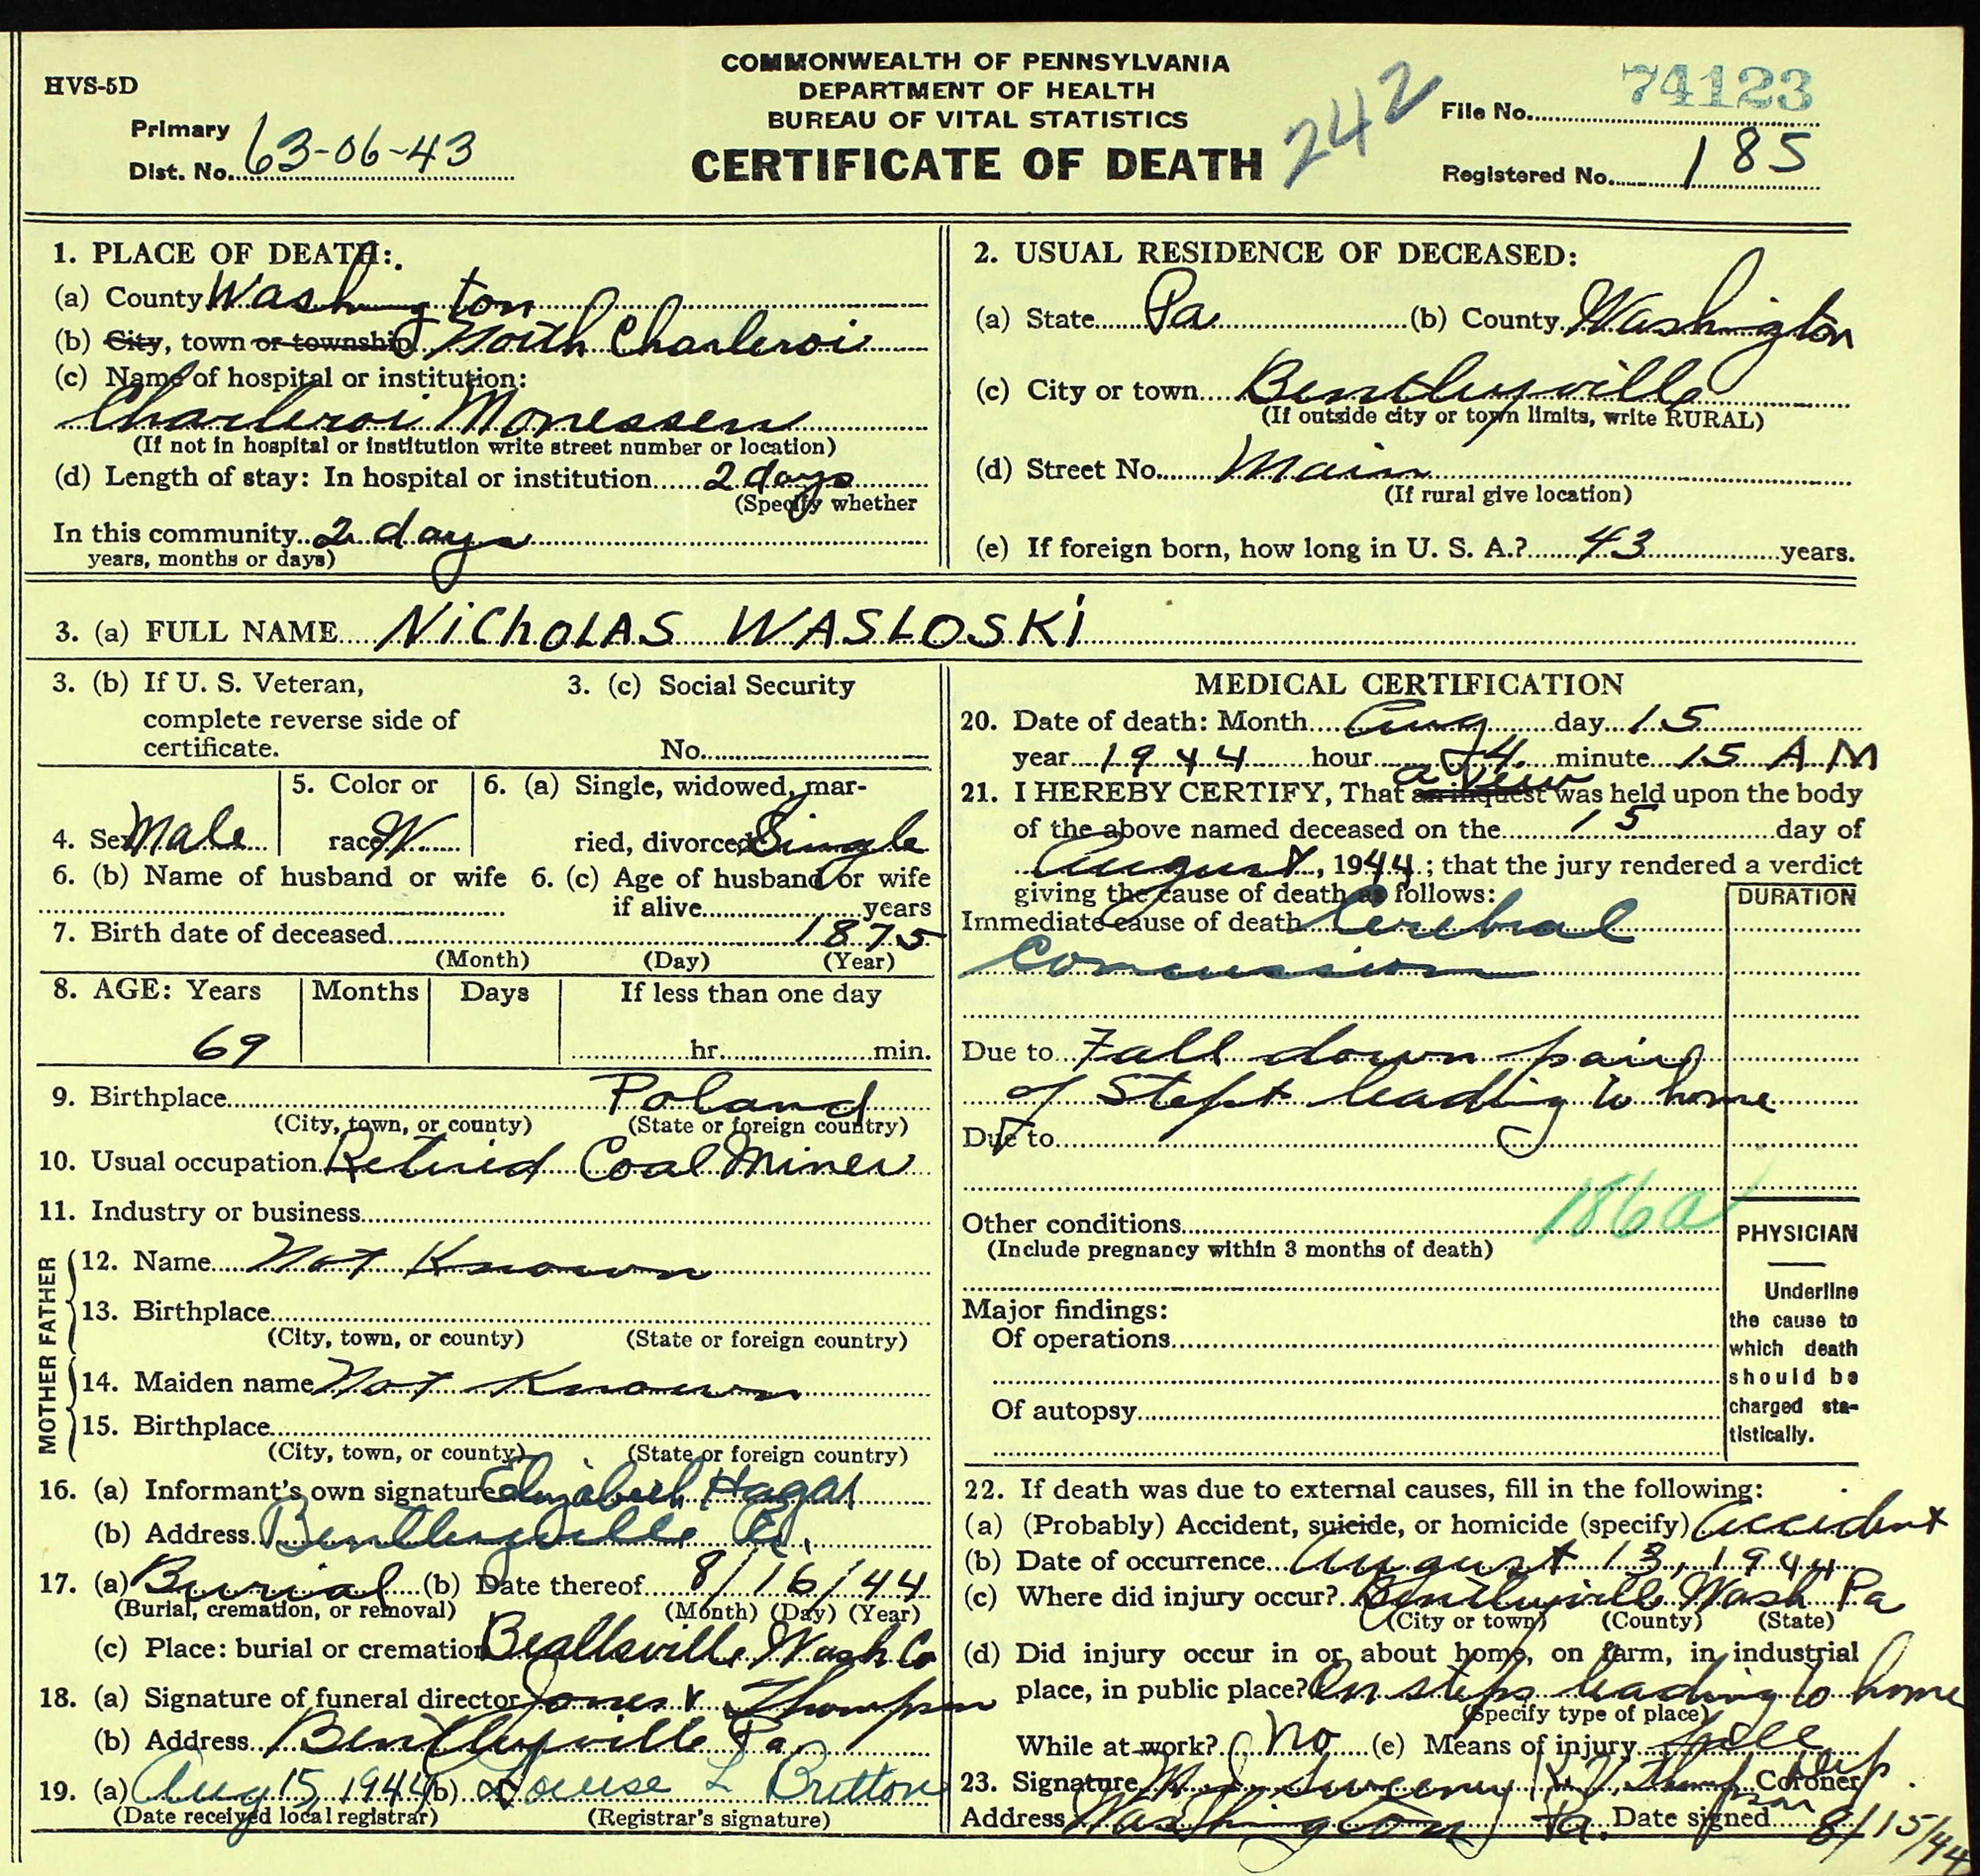 COMMONWEALTH OF PENNSYLVANIA
DEPARTMENT OF HEALTH
BUREAU OF VITAL STATISTICS
CERTIFICATE OF DEATH
242
HVS-5D
Primary
Dist. No. 63-06-43
File No. 74123
Registered No. 185
1. PLACE OF DEATH:
(a) County Washington
(b) City, town or township North Charleroi
(c) Name of hospital or institution:
Charleroi Monessen
(If not in hospital or institution write street number or location)
(d) Length of stay: In hospital or institution 2 days
(Specify whether
In this community 2 days
years, months or days)
2. USUAL RESIDENCE OF DECEASED:
(a) State Pa (b) County Washington
(c) City or town Bentleyville
(If outside city or town limits, write RURAL)
(d) Street No. Main
(If rural give location)
(e) If foreign born, how long in U. S. A.? 43 years.
3. (a) FULL NAME NiChOLAS WASLOSKi
3. (b) If U. S. Veteran,
complete reverse side of
certificate.
3. (c) Social Security
No.
4. Sex Male
5. Color or
race W
6. (a) Single, widowed, mar-
ried, divorced Single
6. (b) Name of husband or wife
6. (c) Age of husband or wife
if alive years
7. Birth date of deceased 1875
(Month) (Day) (Year)
8. AGE: Years Months Days If less than one day
69 hr. min.
9. Birthplace Poland
(City, town, or county) (State or foreign country)
10. Usual occupation Retired Coal Miner
11. Industry or business
FATHER
12. Name Not Known
13. Birthplace
(City, town, or county) (State or foreign country)
MOTHER
14. Maiden name Not Known
15. Birthplace
(City, town, or county) (State or foreign country)
16. (a) Informant's own signature Elizabeth Hagar
(b) Address Bentleyville Pa.
17. (a) Burial (b) Date thereof 8/16/44
(Burial, cremation, or removal) (Month) (Day) (Year)
(c) Place: burial or cremation Beallsville Wash Co
18. (a) Signature of funeral director Jones & Thompson
(b) Address Bentleyville Pa
19. (a) Aug 15, 1944 (b) Louise L Britton
(Date received local registrar) (Registrar's signature)
MEDICAL CERTIFICATION
20. Date of death: Month Aug day 15
year 1944 hour 4 minute 15 AM
a view
21. I HEREBY CERTIFY, That an inquest was held upon the body
of the above named deceased on the 15 day of
August, 1944; that the jury rendered a verdict
giving the cause of death as follows:
DURATION
Immediate cause of death Cerebral
Concussion
Due to Fall down pair
of Steps leading to home
Due to
186a
Other conditions
(Include pregnancy within 3 months of death)
Major findings:
Of operations
Of autopsy
PHYSICIAN
Underline
the cause to
which death
should be
charged sta-
tistically.
22. If death was due to external causes, fill in the following:
(a) (Probably) Accident, suicide, or homicide (specify) Accident
(b) Date of occurrence August 13, 1944
(c) Where did injury occur? Bentleyville Wash Pa
(City or town) (County) (State)
(d) Did injury occur in or about home, on farm, in industrial
place, in public place? On steps leading to home
(Specify type of place)
While at work? No (e) Means of injury fall
23. Signature Sweeney Thompson Dep Coroner
Address Washington Pa. Date signed 8/15/44